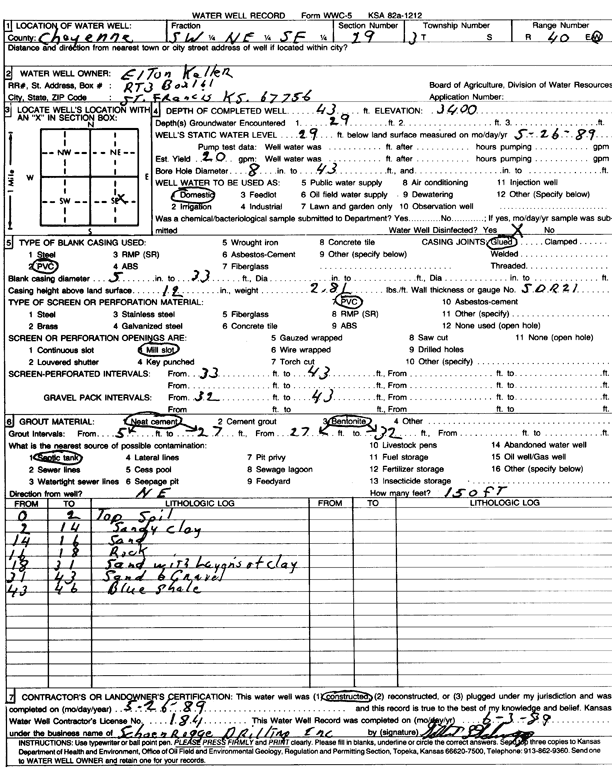 WATER WELL RECORD Form WWC-5 KSA 82a-1212
1 LOCATION OF WATER WELL: Fraction Section Number Township Number Range Number
County: Cheyenne SW ¼ NE ¼ SE ¼ 29 3 T S R 40 E/W
Distance and direction from nearest town or city street address of well if located within city?
2 WATER WELL OWNER: Elton Keller
RR#, St. Address, Box # : RT3 Box 161 Board of Agriculture, Division of Water Resources
City, State, ZIP Code : ST. Francis KS. 67756 Application Number:
3 LOCATE WELL'S LOCATION WITH AN "X" IN SECTION BOX:
N
NW NE
W E
SW SE X
S
1 Mile
4 DEPTH OF COMPLETED WELL 43 ft. ELEVATION: 3400
Depth(s) Groundwater Encountered 1. 29 ft. 2. ft. 3. ft.
WELL'S STATIC WATER LEVEL 29 ft. below land surface measured on mo/day/yr 5-26-89
Pump test data: Well water was ft. after hours pumping gpm
Est. Yield 20 gpm: Well water was ft. after hours pumping gpm
Bore Hole Diameter 8 in. to 43 ft., and in. to ft.
WELL WATER TO BE USED AS: 5 Public water supply 8 Air conditioning 11 Injection well
Domestic 3 Feedlot 6 Oil field water supply 9 Dewatering 12 Other (Specify below)
2 Irrigation 4 Industrial 7 Lawn and garden only 10 Observation well
Was a chemical/bacteriological sample submitted to Department? Yes No ; If yes, mo/day/yr sample was sub-
mitted Water Well Disinfected? Yes X No
5 TYPE OF BLANK CASING USED: 5 Wrought iron 8 Concrete tile CASING JOINTS: Glued Clamped
1 Steel 3 RMP (SR) 6 Asbestos-Cement 9 Other (specify below) Welded
2 PVC 4 ABS 7 Fiberglass Threaded
Blank casing diameter 5 in. to 33 ft., Dia in. to ft., Dia in. to ft.
Casing height above land surface 12 in., weight 2.81 lbs./ft. Wall thickness or gauge No. SDR21
TYPE OF SCREEN OR PERFORATION MATERIAL: 7 PVC 10 Asbestos-cement
1 Steel 3 Stainless steel 5 Fiberglass 8 RMP (SR) 11 Other (specify)
2 Brass 4 Galvanized steel 6 Concrete tile 9 ABS 12 None used (open hole)
SCREEN OR PERFORATION OPENINGS ARE: 5 Gauzed wrapped 8 Saw cut 11 None (open hole)
1 Continuous slot 3 Mill slot 6 Wire wrapped 9 Drilled holes
2 Louvered shutter 4 Key punched 7 Torch cut 10 Other (specify)
SCREEN-PERFORATED INTERVALS: From 33 ft. to 43 ft., From ft. to ft.
From ft. to ft., From ft. to ft.
GRAVEL PACK INTERVALS: From 32 ft. to 43 ft., From ft. to ft.
From ft. to ft., From ft. to ft.
6 GROUT MATERIAL: 1 Neat cement 2 Cement grout 3 Bentonite 4 Other
Grout Intervals: From 5 ft. to 27 ft., From 27 ft. to 32 ft., From ft. to ft.
What is the nearest source of possible contamination: 10 Livestock pens 14 Abandoned water well
1 Septic tank 4 Lateral lines 7 Pit privy 11 Fuel storage 15 Oil well/Gas well
2 Sewer lines 5 Cess pool 8 Sewage lagoon 12 Fertilizer storage 16 Other (specify below)
3 Watertight sewer lines 6 Seepage pit 9 Feedyard 13 Insecticide storage
Direction from well? NE How many feet? 150 FT
FROM TO LITHOLOGIC LOG FROM TO LITHOLOGIC LOG
0 2 Top Soil
2 14 Sandy Clay
14 16 Sand
16 18 Rock
18 31 Sand with Laygn's of clay
31 43 Sand & Gravel
43 46 Blue shale
7 CONTRACTOR'S OR LANDOWNER'S CERTIFICATION: This water well was (1) constructed, (2) reconstructed, or (3) plugged under my jurisdiction and was
completed on (mo/day/year) 5-26-89 and this record is true to the best of my knowledge and belief. Kansas
Water Well Contractor's License No. 184 This Water Well Record was completed on (mo/day/yr) 6-3-89
under the business name of SchoenRogge Drilling Inc by (signature)
INSTRUCTIONS: Use typewriter or ball point pen. PLEASE PRESS FIRMLY and PRINT clearly. Please fill in blanks, underline or circle the correct answers. Send top three copies to Kansas
Department of Health and Environment, Office of Oil Field and Environmental Geology, Regulation and Permitting Section, Topeka, Kansas 66620-7500, Telephone: 913-862-9360. Send one
to WATER WELL OWNER and retain one for your records.